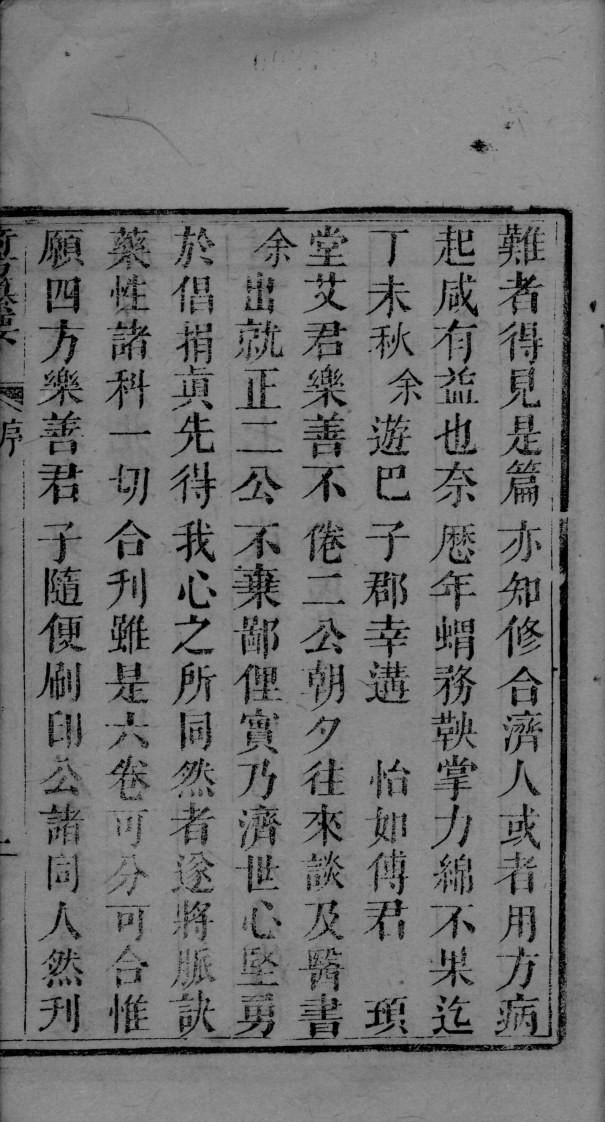 難者得見是篇亦知修合濟人或者用方病
起咸有益也奈歷年蝟務鞅掌力綿不果迄
丁未秋余遊巴子郡幸遘 怡如傅君 頊
堂艾君樂善不倦二公朝夕往來談及醫書
余出就正二公不棄鄙俚實乃濟世心堅勇
於倡捐眞先得我心之所同然者遂將脈訣
藥性諸科一切合刋雖是六卷可分可合惟
願四方樂善君子隨便刷印公諸同人然刋
序